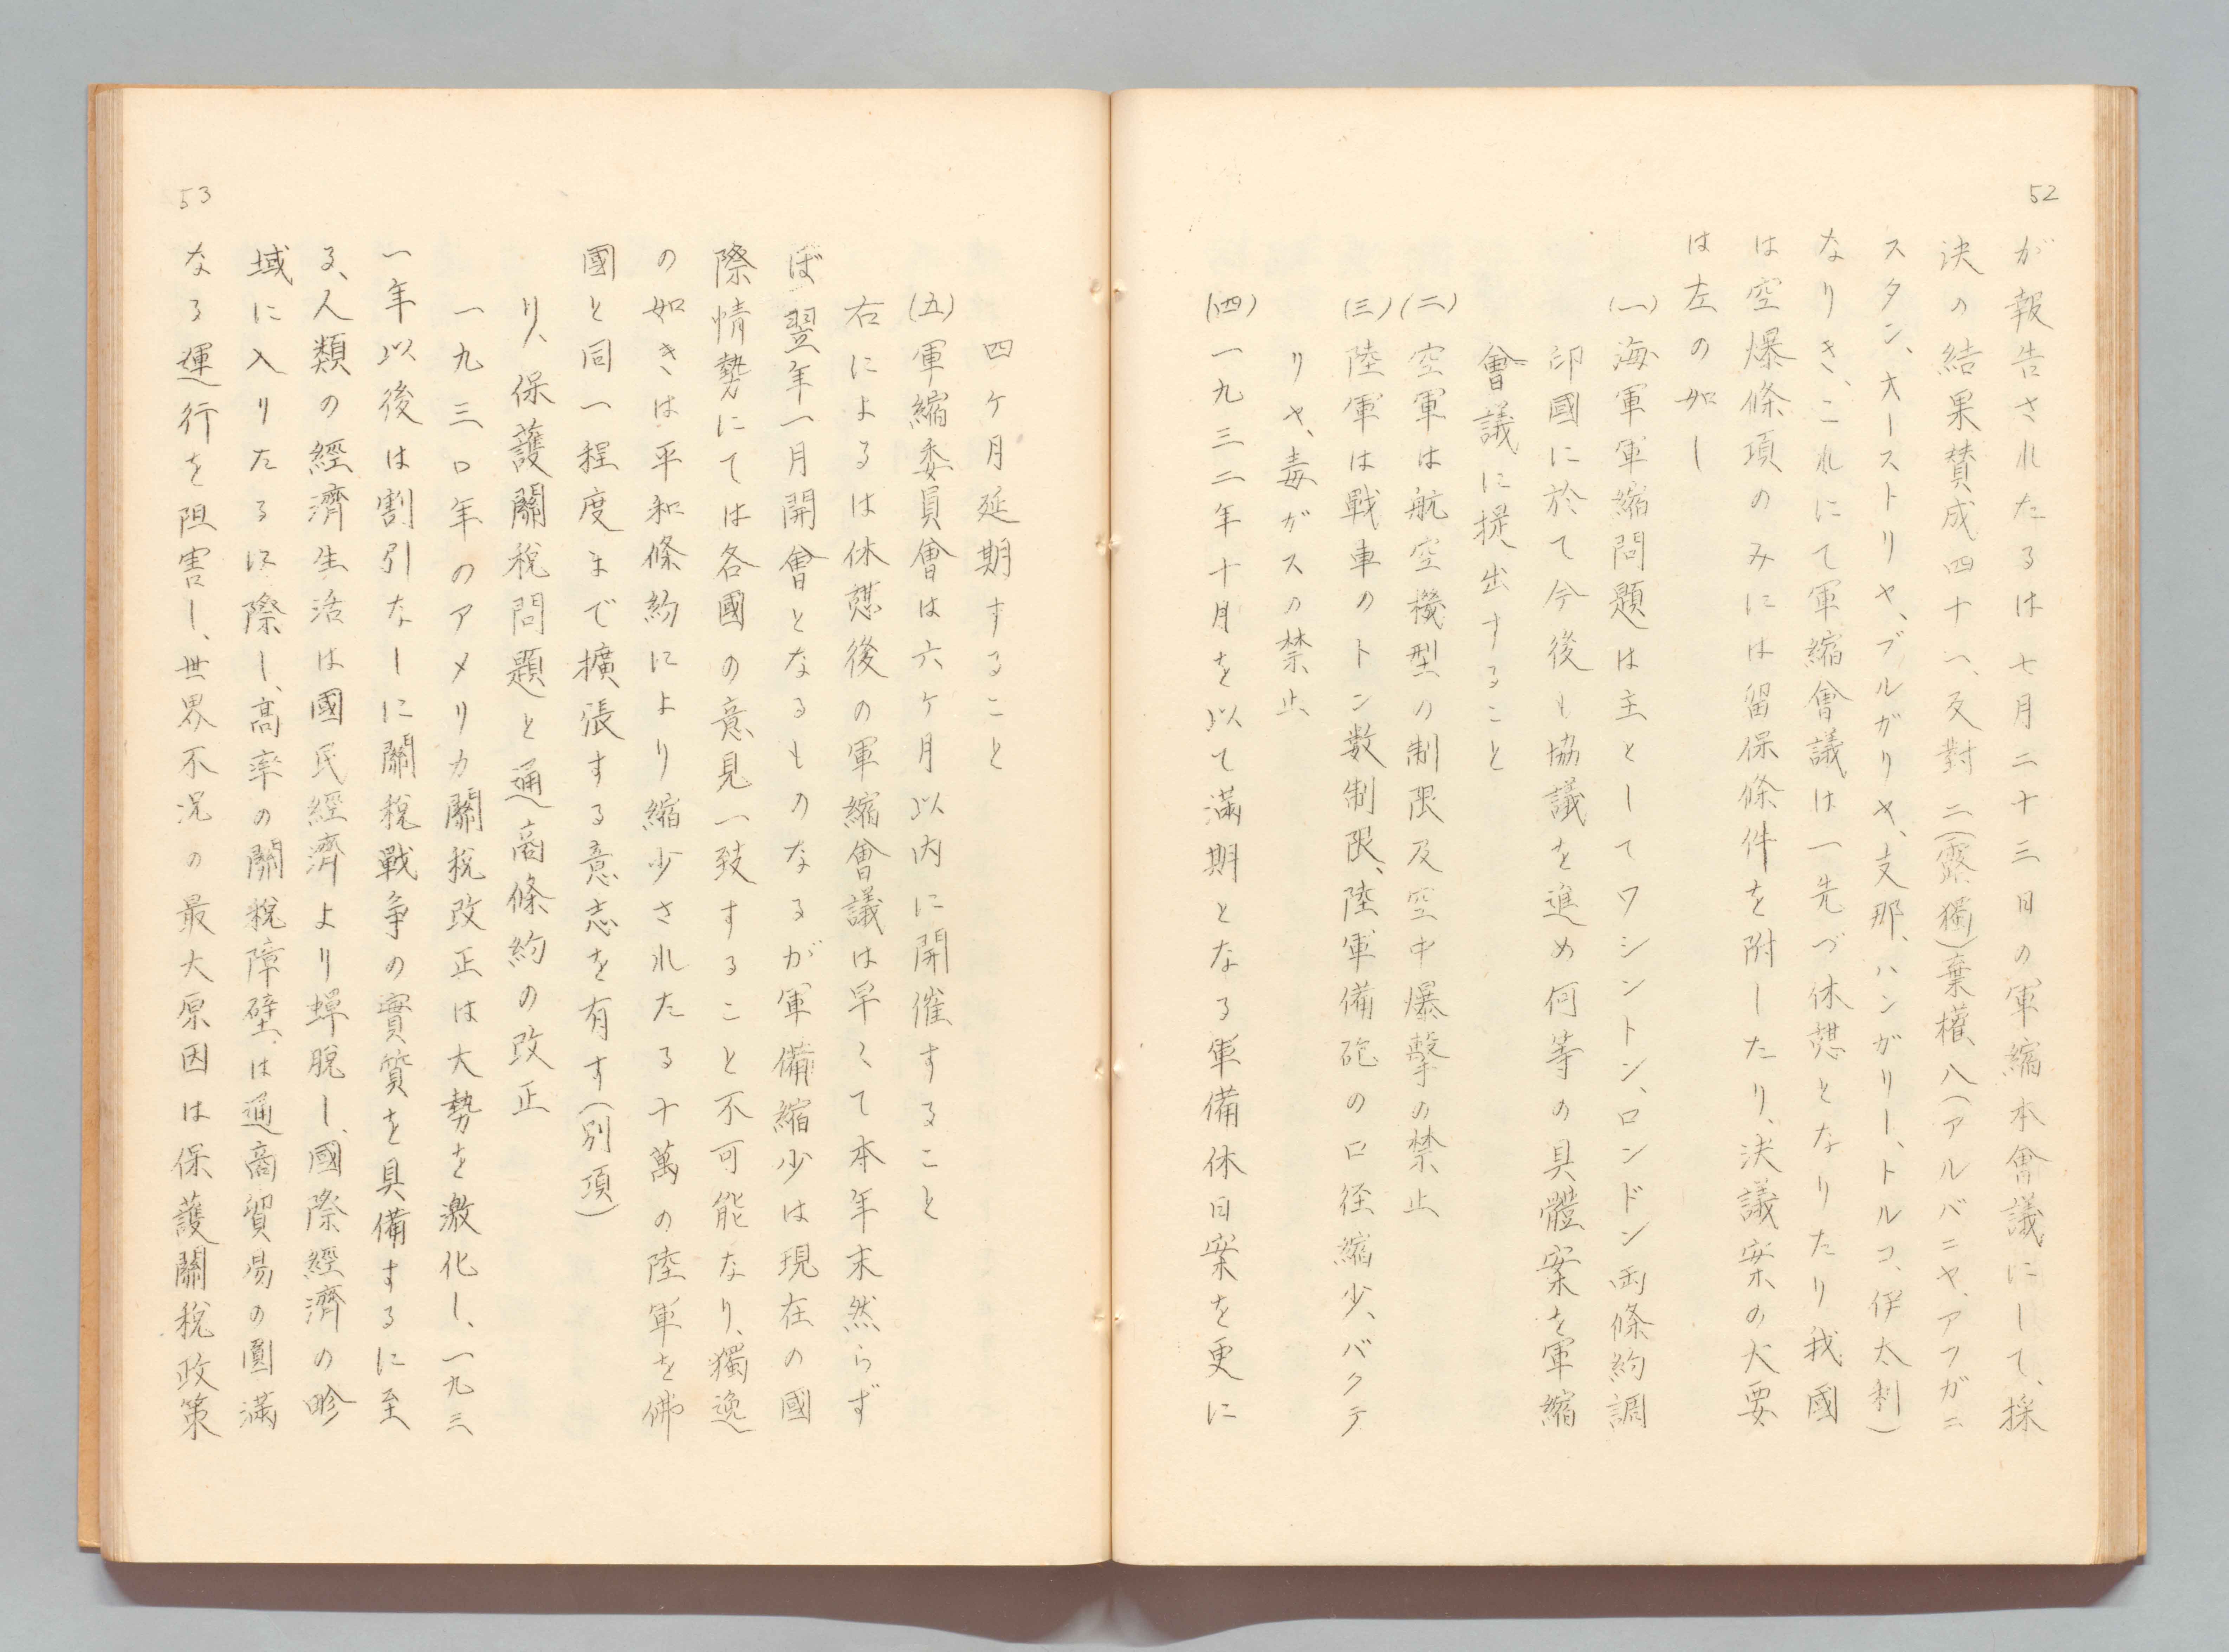 52
が報告されたるは七月二十三日の軍縮本會議にして、採
決の結果賛成四十一、反對二(露獨)棄權八(アルバニヤ、アフガニ
スタン、オーストリヤ、ブルガリヤ、支那、ハンガリー、トルコ、伊太利)
なりき、これにて軍縮會議は一先づ休憩となりたり我國
は空爆條項のみには留保條件を附したり、決議案の大要
は左の如し
(一)海軍軍縮問題は主としてワシントン、ロンドン両條約調
印國に於て今後も協議を進め何等の具體案を軍縮
會議に提出すること
(二)空軍は航空機型の制限及空中爆擊の禁止
(三)陸軍は戰車のトン數制限、陸軍備砲の口径縮少、バクテ
リヤ、毒ガスの禁止
(四)一九三二年十月を以て滿期となる軍備休日案を更に
四ヶ月延期すること
(五)軍縮委員會は六ヶ月以内に開催すること
右によるは休憩後の軍縮會議は早くて本年末然らず
ば翌年一月開會となるものなるが軍備縮少は現在の國
際情勢にては各國の意見一致すること不可能なり、獨逸
の如きは平和條約により縮少されたる十萬の陸軍を佛
國と同一程度まで擴張する意志を有す(別項)
り、保護關稅問題と通商條約の改正
一九三〇年のアメリカ關稅改正は大勢を激化し、一九三
一年以後は割引なしに關稅戰争の實質を具備するに至
る、人類の經濟生活は國民經濟より蟬脫し、國際經濟の畛
域に入りたるに際し、高率の關稅障壁は通商貿易の圓滿
なる運行を阻害し、世界不況の最大原因は保護關稅政策
53